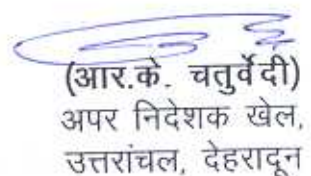 (आर.के. चतुर्वेदी)
अपर निदेशक खेल,
उत्तरांचल, देहरादून